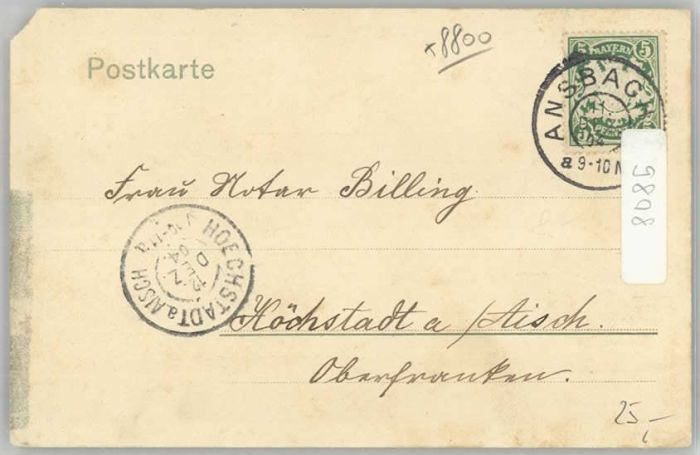 x8800
Postkarte
5 BAYERN 5
ANSBACH
11.
04
a 9-10 N
9808
Frau Notar Billing
HOECHSTADT a AISCH
12 JUN
04
Höchstadt a/Aisch.
Oberfranken.
25,-